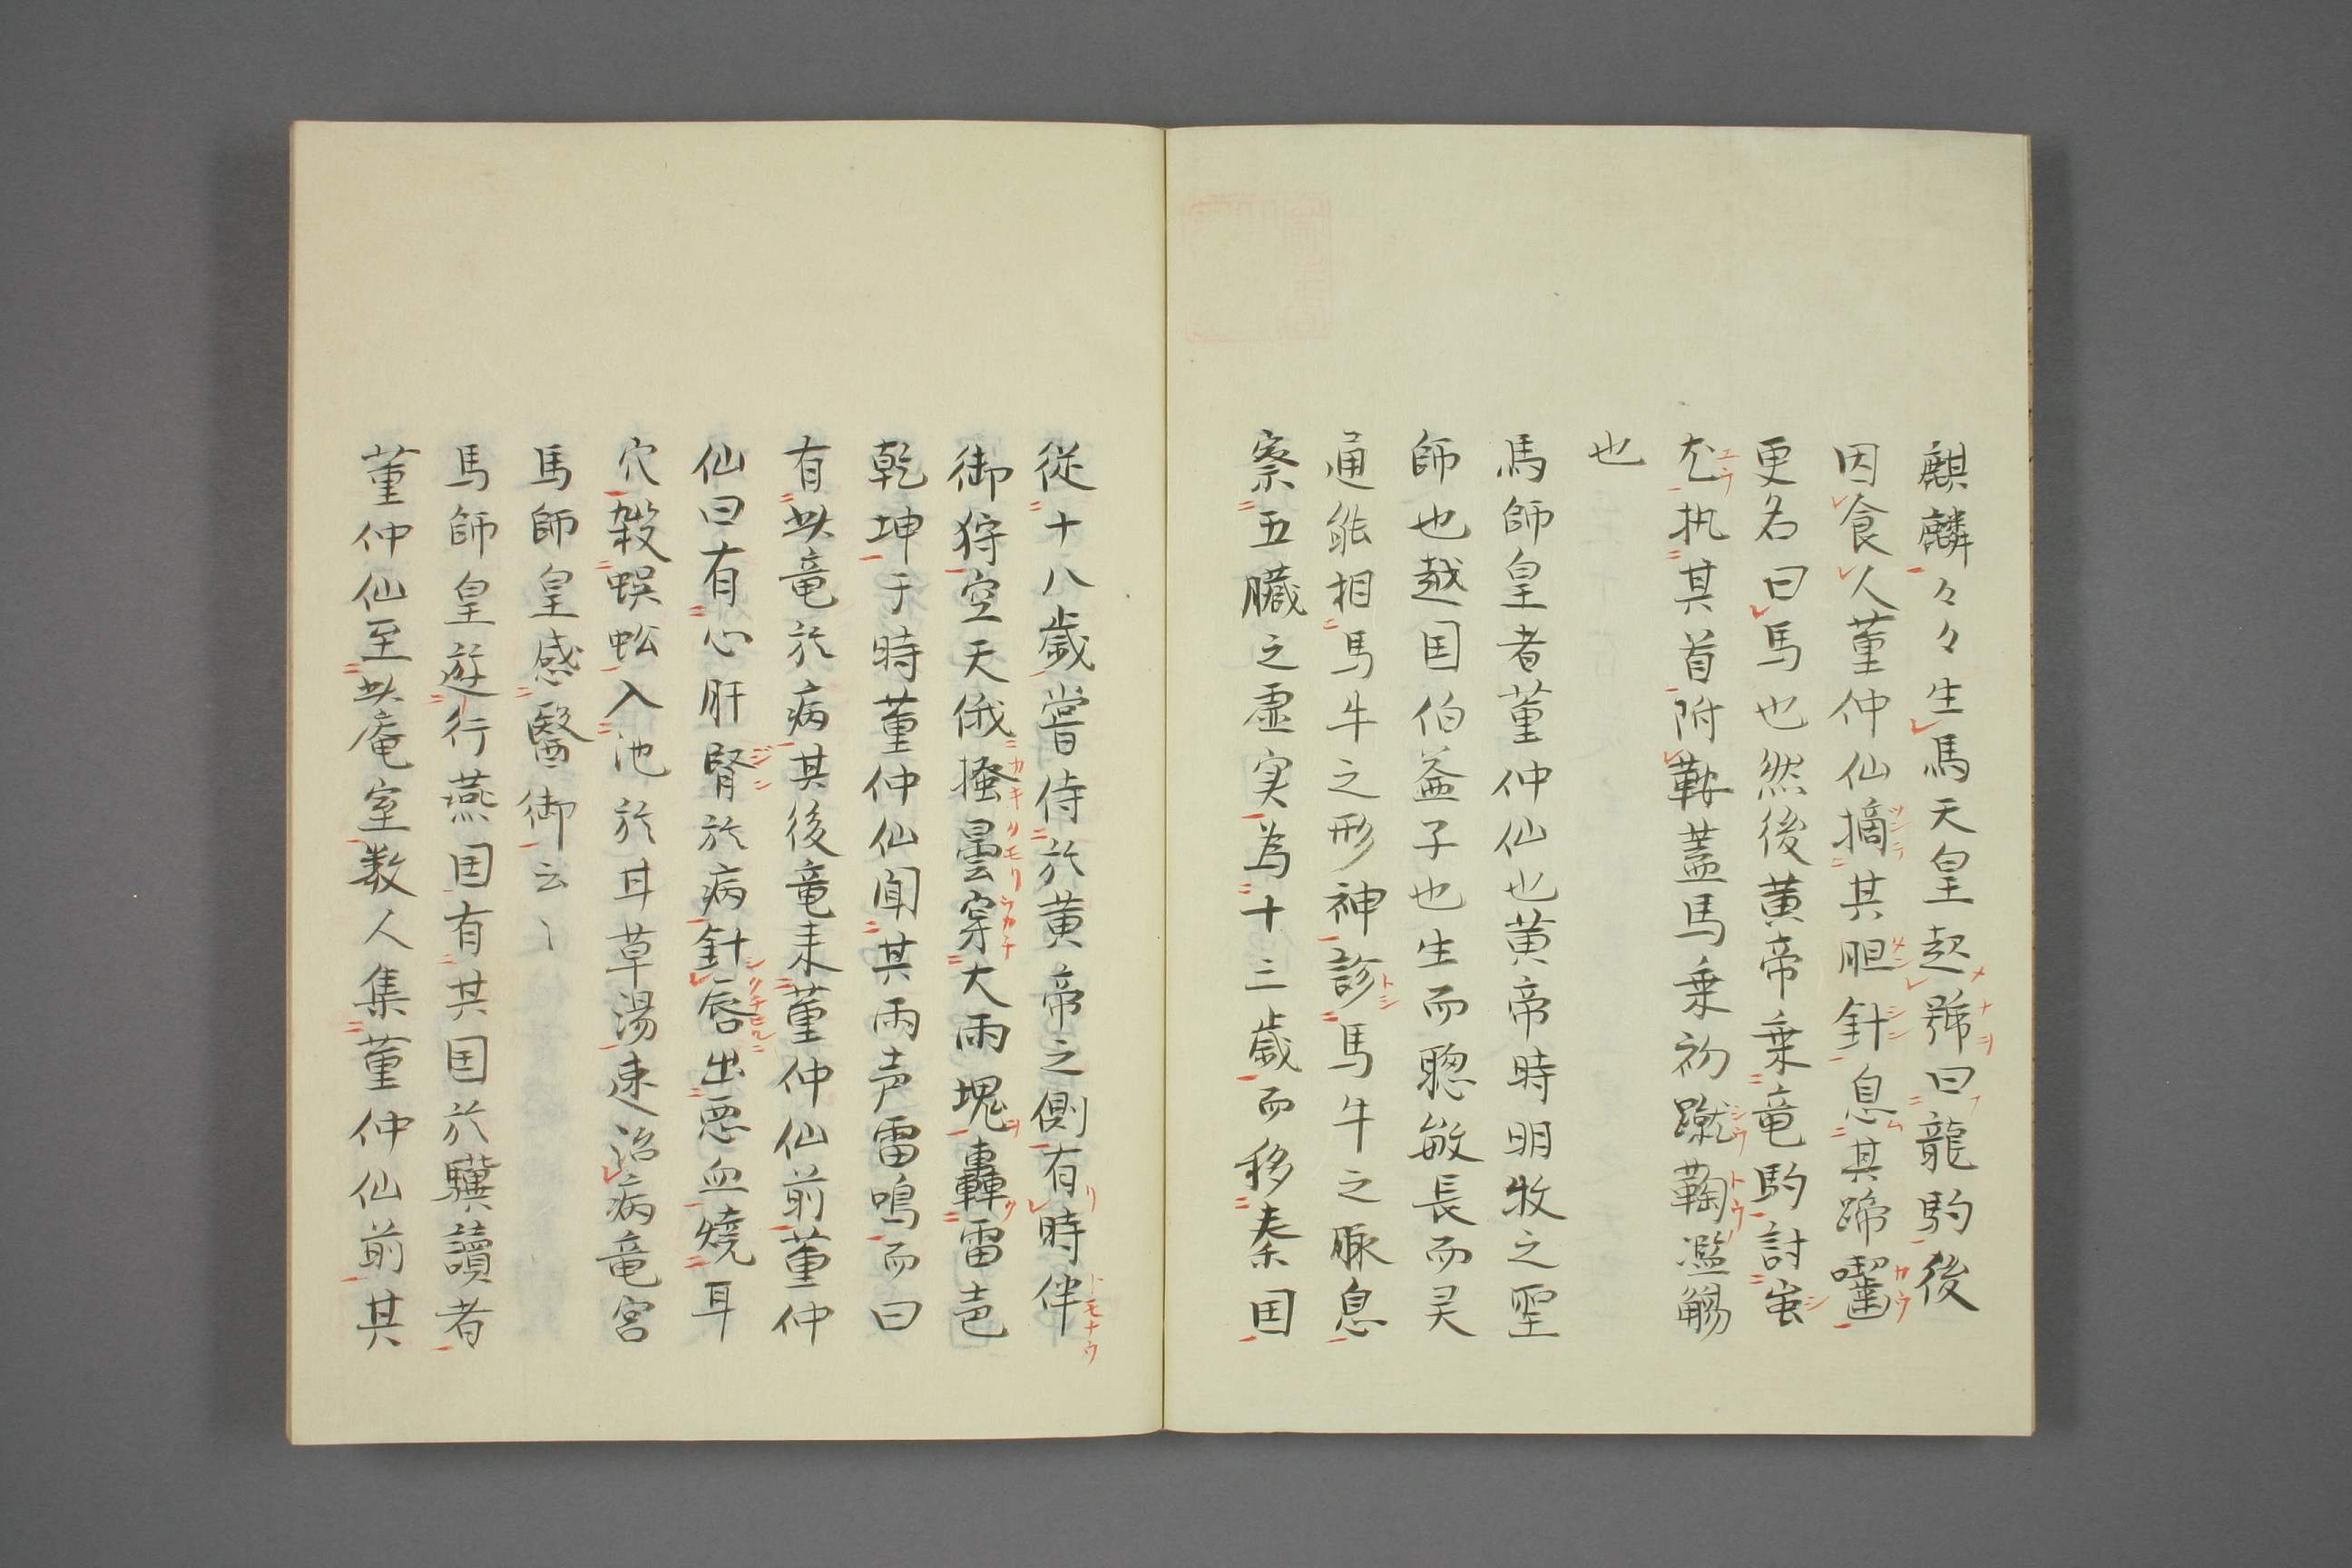 麒麟々々生馬天皇起號曰龍駒後
因食人董仲仙摘其胆針息其蹄囓
更名曰馬也然後黄帝乗竜駒討蚩
尤执其首附鞍蓋馬乗初蹴鞠濫觴
也
馬師皇者董仲仙也黄帝時明牧之聖
師也越国伯益子也生而聡敏長而灵
通能相馬牛之形神診馬牛之脈息
察五臓之虚実為十三歳而移秦国
従十八歳甞侍於黄帝之側有時伴
御狩空天俄掻曇穿大雨塊轟雷声
乾坤于時董仲仙聞其雨声雷鳴而曰
有此竜於病其後竜来董仲仙前董仲
仙曰有心肝腎於病針唇出悪血焼耳
穴殺蜈蚣入池於甘草湯速治病竜宮
馬師皇感醫御云〻
馬師皇遊行燕国有其国於驥讀者
董仲仙至此庵室数人集董仲仙前其